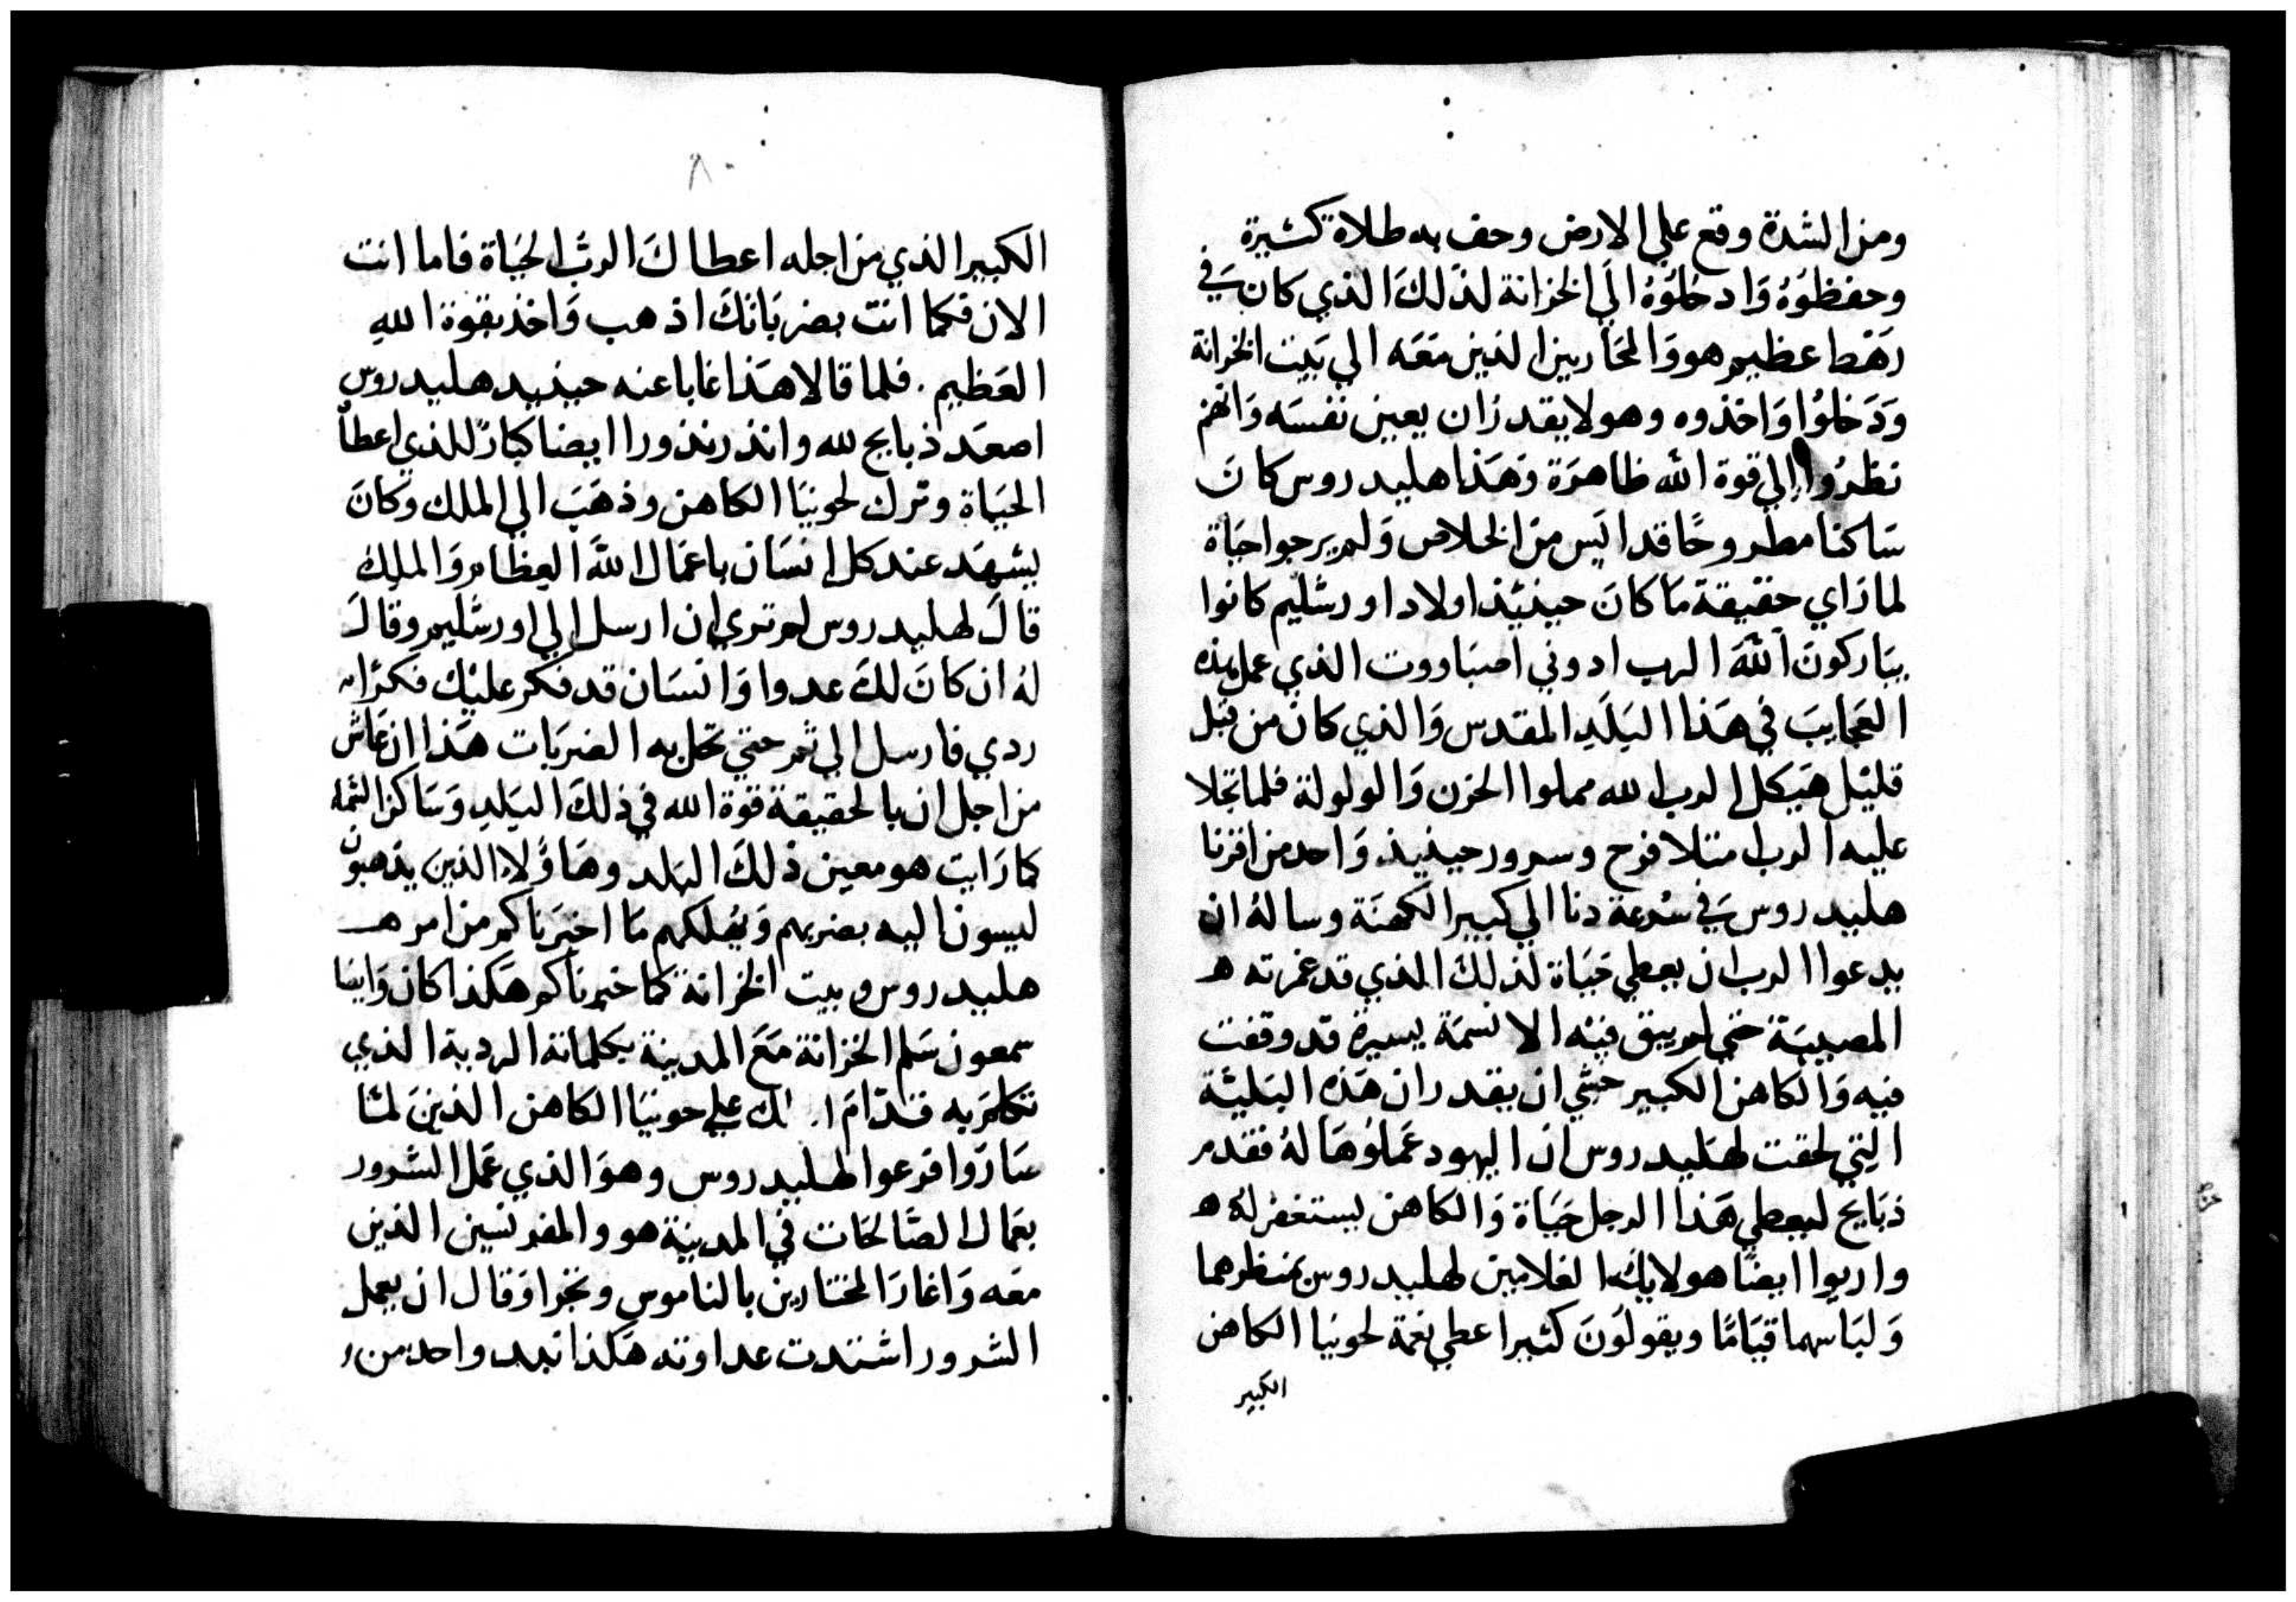 ومن الشدة وقع علي الارض وحف به طلاة كثيرة
وحفظوُهُ وَادخلوُهُ الَي الخزانة لذلكَ الذي كان في
رَهَط عظيم هو وَالمحَاربين الذين مَعَه الي بَيت الخزانة
وَدَخلوُا وَاخذوه وهو لا يقدر ان يعين نفسَه وَانهم
نظرُوا الي قوة الله ظاهرَة وَهَذا هليدروس كانَ
سَاكنا مطروحًا قد ايَس منَ الخلاص وَلم يرجوا حيَاة
لما رَاي حقيقة مَا كانَ حينئذ اولاد اورشليم كانوا
يبَاركونَ اللهَ الرب ادوني اصبَاووت الذي عمل هذه
العَجايبَ في هَذا البَلَدِ المقدس وَالذي كانَ من قبل
قليْل هَيكل الرب الله مملوا الحزن وَالولولة فلما تجلا
عليه الرب امتلا فرح وسرور حينيذ وَاحد من اقرنا
هليدروس في سُرعة دنا الي كبير الكهنَة وسالهُ ان
يدعوا الرب ان يعطي حَيَاة لذلكَ الذي قد غمرته ه
المصيبَة حتي لم يبق فيْه الا نسمَة يسيرة قد وقفت
فيه وَالكاهن الكبير خشي ان يقدر ان هَذه البَليئة
التي لحقت لهَليدروس ان اليهود عَملوُهَا لهُ فقدم
ذبَايح ليعطي هَذا الرجل حَيَاة وَالكاهن يستغفر لهُ ه
واريوا ايضًا هولايك الغلامين لهليدروس بمنظرهما
وَلبَاسهما قيَامًا ويقولوُنَ كثيرا عطي نعمة لحونيا الكاهن
الكبير
٨٠
الكبير الذي من اجله اعطاكَ الربُّ الحيَاة فاما انت
الان فكما انت بضربَاتكَ اذهب وَاخذ بقوة الله
العَظيم. فلما قالا هَذا غابا عنه حينيد هليدروس
اصعَد ذبايح لله وانذر نذورا ايضا كبارًا للذي اعطاه
الحيَاة وترك لحونيَا الكاهن وذهَبَ الي الملك وكانَ
يشهَد عند كل انسَان باعمَال اللهَ العِظام وَالملِك
قالَ لهليدروس لم تري ان ارسل الي اورشليم وقالَ
لهُ ان كانَ لكَ عدوا وَانسَان قد فكر عليْك فكرًا
ردي فارسل الي ثم حتي تحل به الضربَات هَذا ان عَاش
من اجل ان بالحقيقة قوة الله في ذلكَ البَلدِ وَسَاكن السَّمَا
كما رَايت هو معين ذلكَ البَلد وهَاوُلاءِ الذينَ يذهبونَ
ليسون اليه بضربهم وَيهلكهم مَا اخبَرناكم من امر هـ
هليدروس وبيت الخزانة كما خبرناكم هَكذا كان وَايضا
سمعون سَلم الخزانة مَعَ المدينة بكلماته الرديه الذي
تكلمَ به قدّامَ علي حونيَا الكاهن الذينَ لمّا
سَارَوا فزعوا لهليدروس وهوَ الذي عَمل الشرور
بعَمال الصَّالحَات في المدينة هو والمفرنسين الذين
معَه وَاغارَ المختارين بالناموس وتجرا وَقال ان يعمل
الشرور اشتدت عداوته هَكذا بيد واحد من